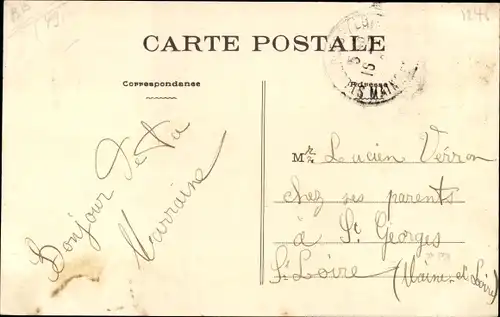 CARTE POSTALE
Correspondance
Adresse
Bonjour De Ta
Marraine
Mr Lucien Verron
chez ses parents
à St Georges
S. Loire (Maine et Loire)